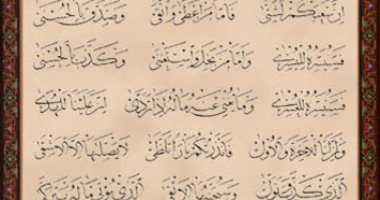 إن سعيكم لشتى فأما من أعطى واتقى وصدق بالحسنى
فسنيسره لليسرى وأما من بخل واستغنى وكذب بالحسنى
فسنيسره للعسرى وما يغني عنه ماله إذا تردى إن علينا للهدى
وإن لنا للآخرة والأولى فأنذرتكم نارا تلظى لا يصلاها إلا الأشقى
الذي كذب وتولى وسيجنبها الأتقى الذي يؤتي ماله يتزكى